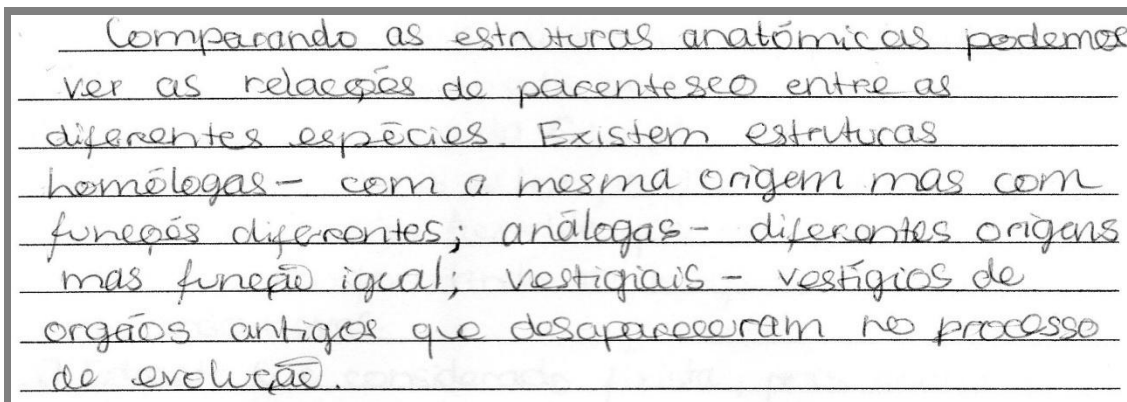 Comparando as estruturas anatómicas podemos
ver as relacções de parentesco entre as
diferentes espécies. Existem estruturas
homólogas - com a mesma origem mas com
funções diferentes; análogas - diferentes origens
mas função igual; vestigiais - vestígios de
orgãos antigos que desapareceram no processo
de evolução.